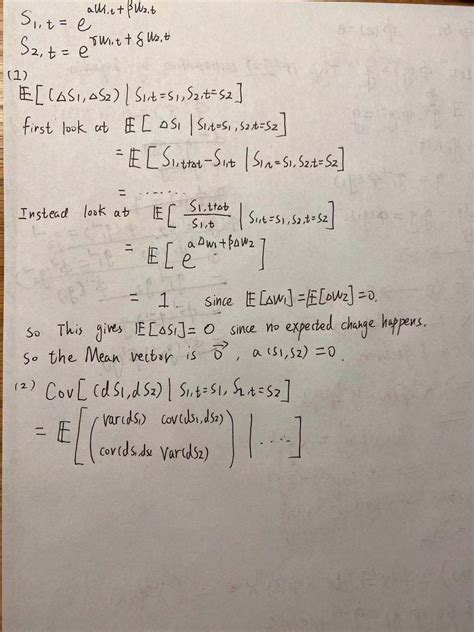 S₁,t = e^{aW₁,t + βW₂,t}
S₂,t = e^{γW₁,t + δW₂,t}
(1)
𝔼[(ΔS₁, ΔS₂) | S₁,t=S₁, S₂,t=S₂]
first look at 𝔼[ΔS₁ | S₁,t=S₁, S₂,t=S₂]
= 𝔼[S₁,t+Δt − S₁,t | S₁,t=S₁, S₂,t=S₂]
= ........
Instead look at 𝔼[S₁,t+Δt / S₁,t | S₁,t=S₁, S₂,t=S₂]
= 𝔼[e^{aΔW₁+βΔW₂}]
= 1. since 𝔼[ΔW₁]=𝔼[ΔW₂]=0.
so This gives 𝔼[ΔS₁]=0 since no expected change happens.
so the Mean vector is 0⃗, a(S₁,S₂)=0.
(2) Cov[(dS₁,dS₂) | S₁,t=S₁, S₂,t=S₂]
= 𝔼[( var(dS₁) cov(dS₁,dS₂)
cov(dS₁,dS₂ Var(dS₂) ) | ....]